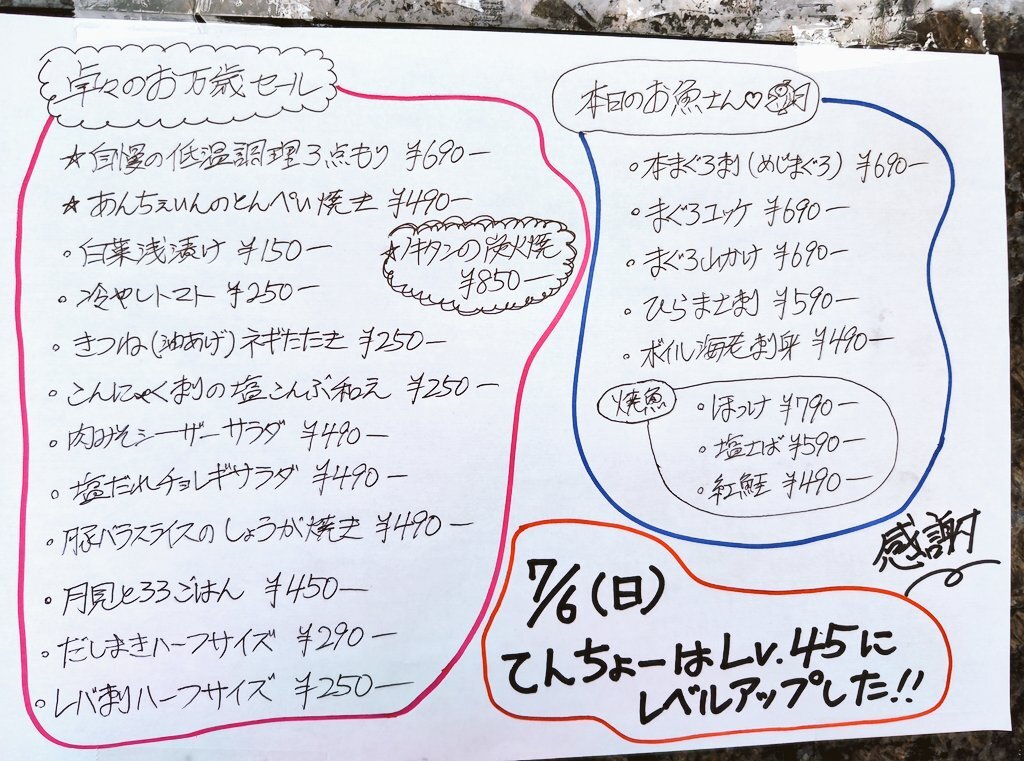 卓々のお万歳セール
☆自慢の低温調理3点もり ¥690ー
☆あんちぇいんのとんぺい焼き ¥490ー
・白菜浅漬け ¥150ー
☆牛タンの炭火焼
¥850ー
・冷やしトマト ¥250ー
・きつね(油あげ)ネギたたき ¥250ー
・こんにゃく刺の塩こんぶ和え ¥250ー
・肉みそシーザーサラダ ¥490ー
・塩だれチョレギサラダ ¥490ー
・豚バラスライスのしょうが焼き ¥490ー
・月見とろろごはん ¥450ー
・だしまきハーフサイズ ¥290ー
・レバ刺ハーフサイズ ¥250ー
本日のお魚さん♡
・本まぐろ刺(めじまぐろ) ¥690ー
・まぐろユッケ ¥690ー
・まぐろ山かけ ¥690ー
・ひらまさ刺 ¥590ー
・ボイル海老刺身 ¥490ー
焼魚
・ほっけ ¥790ー
・塩さば ¥590ー
・紅鮭 ¥490ー
感謝
7/6(日)
てんちょーはLv.45に
レベルアップした!!